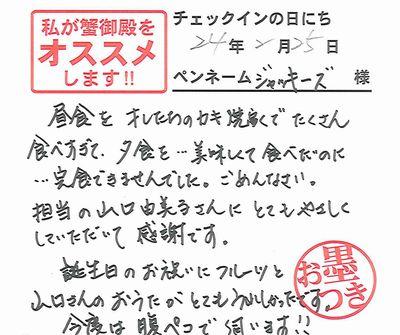 私が蟹御殿を
オススメ
します!!
チェックインの日にち
24年2月25日
ペンネーム ジャッキーズ 様
昼食を オレたちのカキ焼家でたくさん
食べすぎて、夕食を…美味しくて食べたいのに
…完食できませんでした。ごめんなさい。
担当の山口由美子さんに とてもやさしく
していただいて 感謝です。
誕生日のお祝いにフルーツと
山口さんのおうたがとてもうれしかったです。
今度は腹ペコで伺います!!
お墨つき